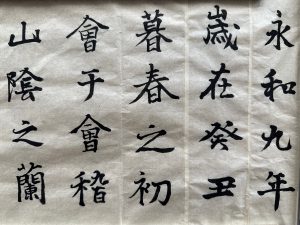 永和九年
歲在癸丑
暮春之初
會于會稽
山陰之蘭